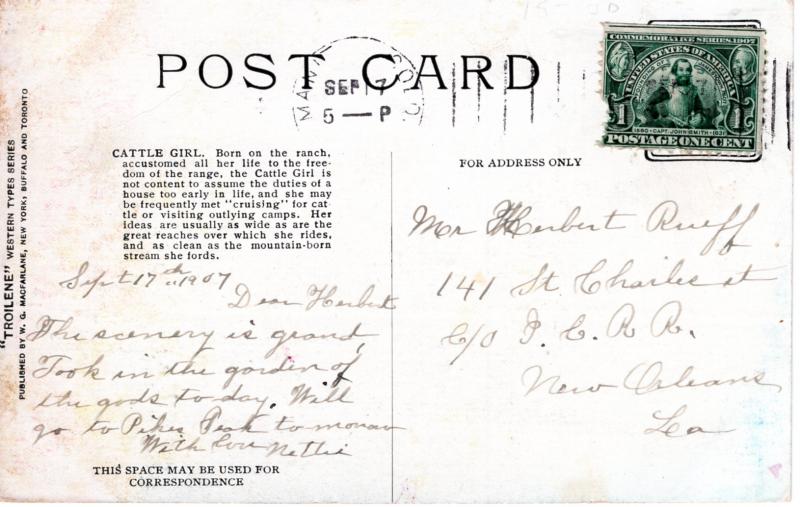 POST CARD
MANI
COLO
SEP 17
5 — P
COMMEMORATIVE SERIES 1907
UNITED STATES OF AMERICA
1 1
1580 · CAPT. JOHN SMITH · 1631
POSTAGE ONE CENT
"TROILENE" WESTERN TYPES SERIES
PUBLISHED BY W. G. MACFARLANE, NEW YORK; BUFFALO AND TORONTO
CATTLE GIRL. Born on the ranch,
accustomed all her life to the free-
dom of the range, the Cattle Girl is
not content to assume the duties of a
house too early in life, and she may
be frequently met "cruising" for cat-
tle or visiting outlying camps. Her
ideas are usually as wide as are the
great reaches over which she rides,
and as clean as the mountain-born
stream she fords.
Sept 17th 1907
Dear Herbert
The scenery is grand,
Took in the garden of
the gods to day. Will
go to Pikes Peak to morrow
With Love Nettie
THIS SPACE MAY BE USED FOR
CORRESPONDENCE
FOR ADDRESS ONLY
Mr Herbert Rueff
141 St. Charles st
C/O I. C. R R.
New Orleans
La